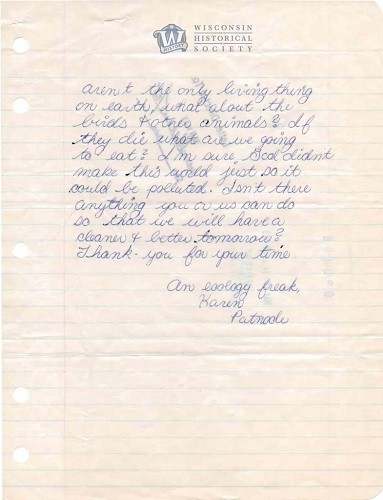 WISCONSIN
HISTORICAL
SOCIETY
W
HISTORY
aren't the only living thing
on earth, what about the
birds & other animals? If
they die what are we going
to eat? I'm sure, God didn't
make this world just so it
could be polluted. Isn't there
anything you or us can do
so that we will have a
cleaner & better tomorrow?
Thank-you for your time.
An ecology freak,
Karen
Patnode